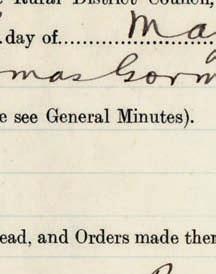 Rural District Council,
day of........ Ma
mas Gorm
e see General Minutes).
ead, and Orders made ther